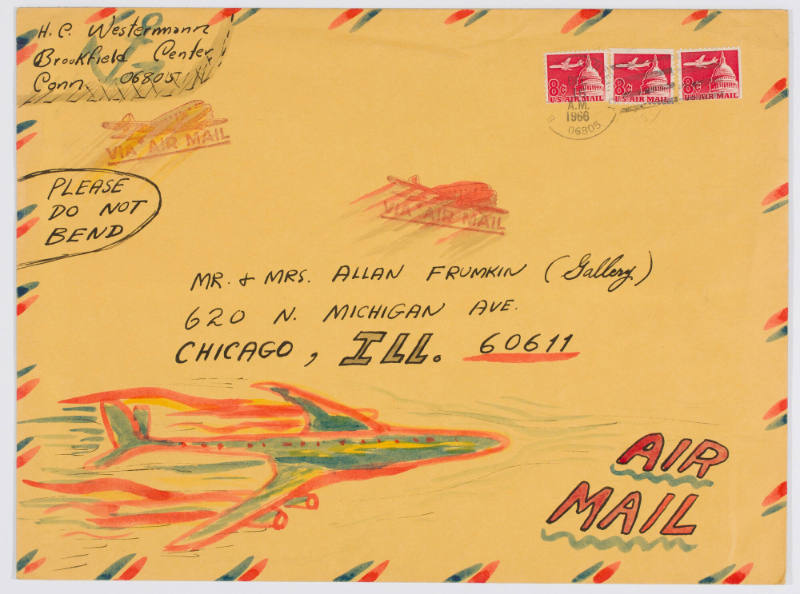 H. C. Westermann
Brookfield Center,
Conn. 06805
8¢
U.S. AIR MAIL
8¢
U.S. AIR MAIL
8¢
U.S. AIR MAIL
A.M.
1966
06805
VIA AIR MAIL
VIA AIR MAIL
PLEASE
DO NOT
BEND
MR. & MRS. ALLAN FRUMKIN (Gallery)
620 N. MICHIGAN AVE.
CHICAGO, ILL. 60611
AIR
MAIL